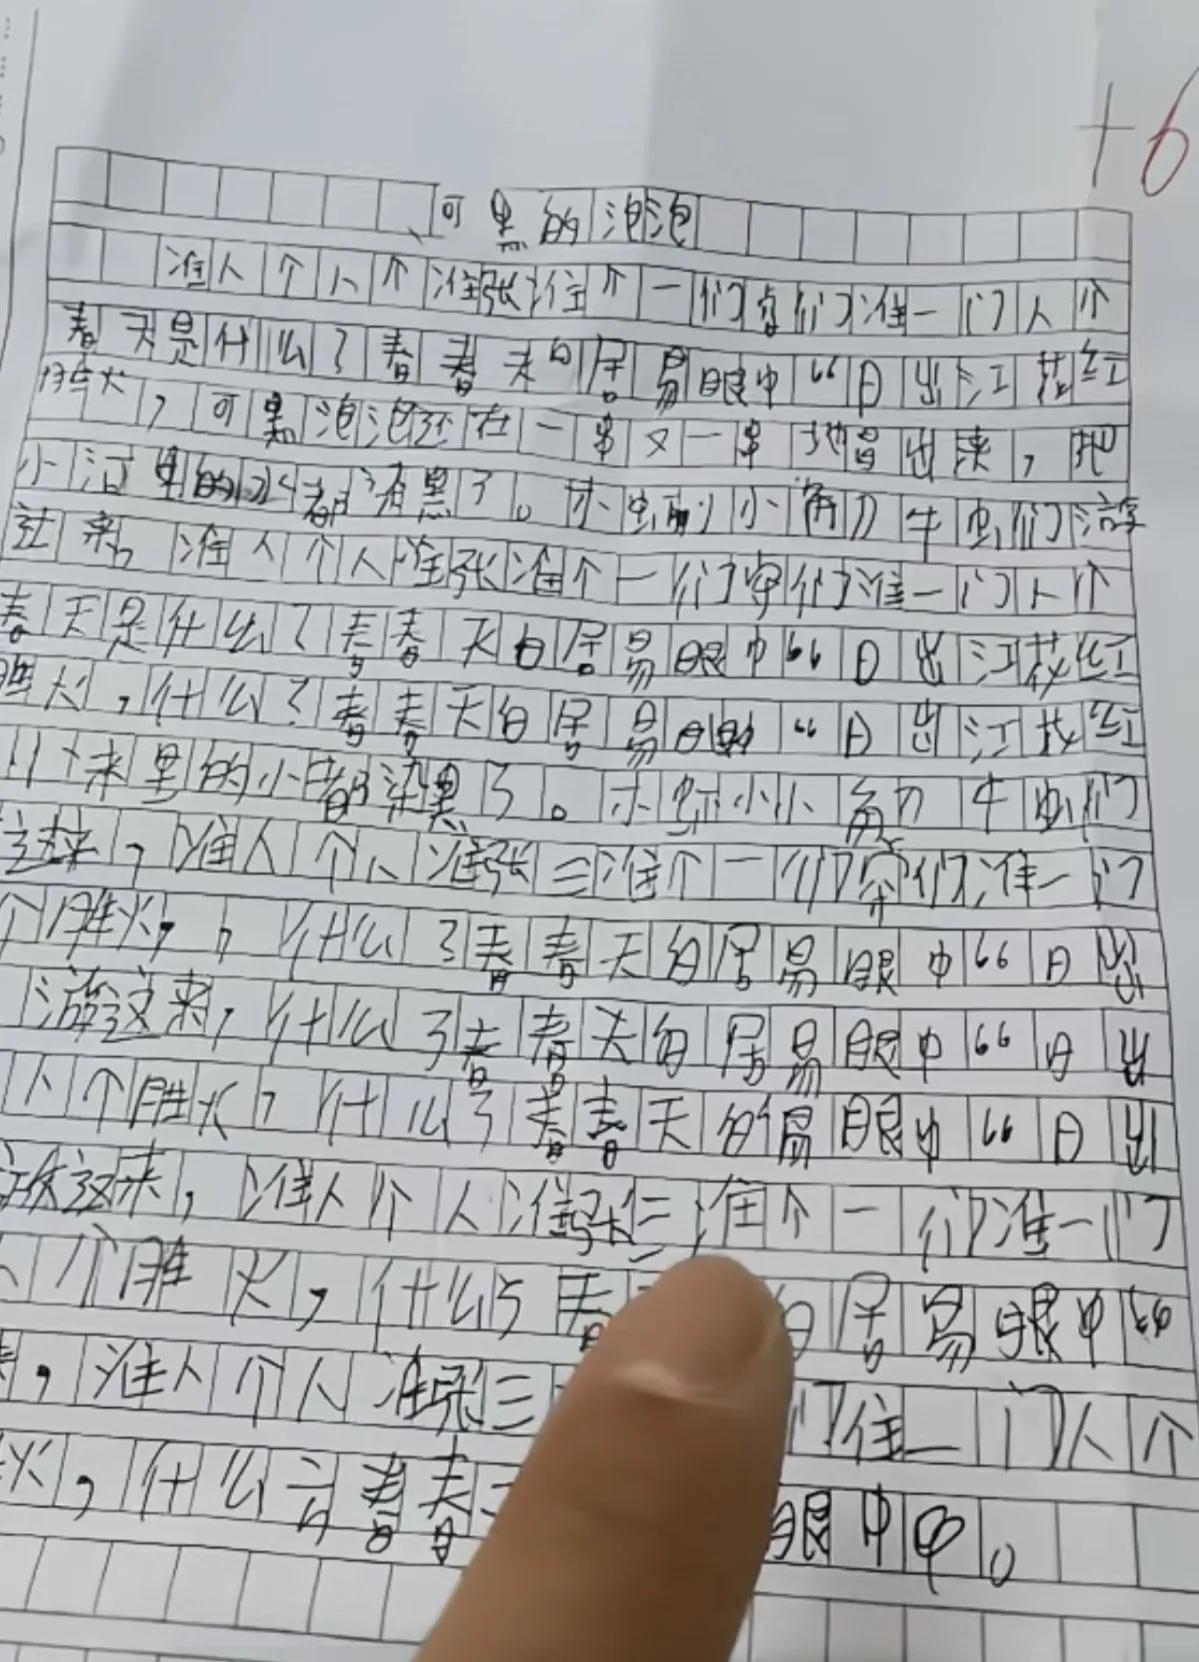 +6
可黑的泡泡
准人个人个准张准个一们穿们准一门人个
春天是什么了春春天白居易眼中“日出江花红
胜火，可黑泡泡还在一串又一串地冒出来，把
小河里的水都染黑了。小虫们游
过来，准人个人准张准个一们穿们准一门人个
春天是什么了春春天白居易眼中“日出江花红
胜火，什么了春春天白居易眼中“日出江花红
来里的小都染黑了。小小牛虫们
这来，准人个人准张三准个一们穿们准一门
个胜火，什么了春春天白居易眼中“日出
游这来，什么了春春天白居易眼中“日出
人个胜火，什么了春春天白居易眼中“日出
这来，准人个人准张三准个一们准一门
人个胜火，什么了春白居易眼中“
，准人个人准张三们住一门人个
火，什么春春眼中中。